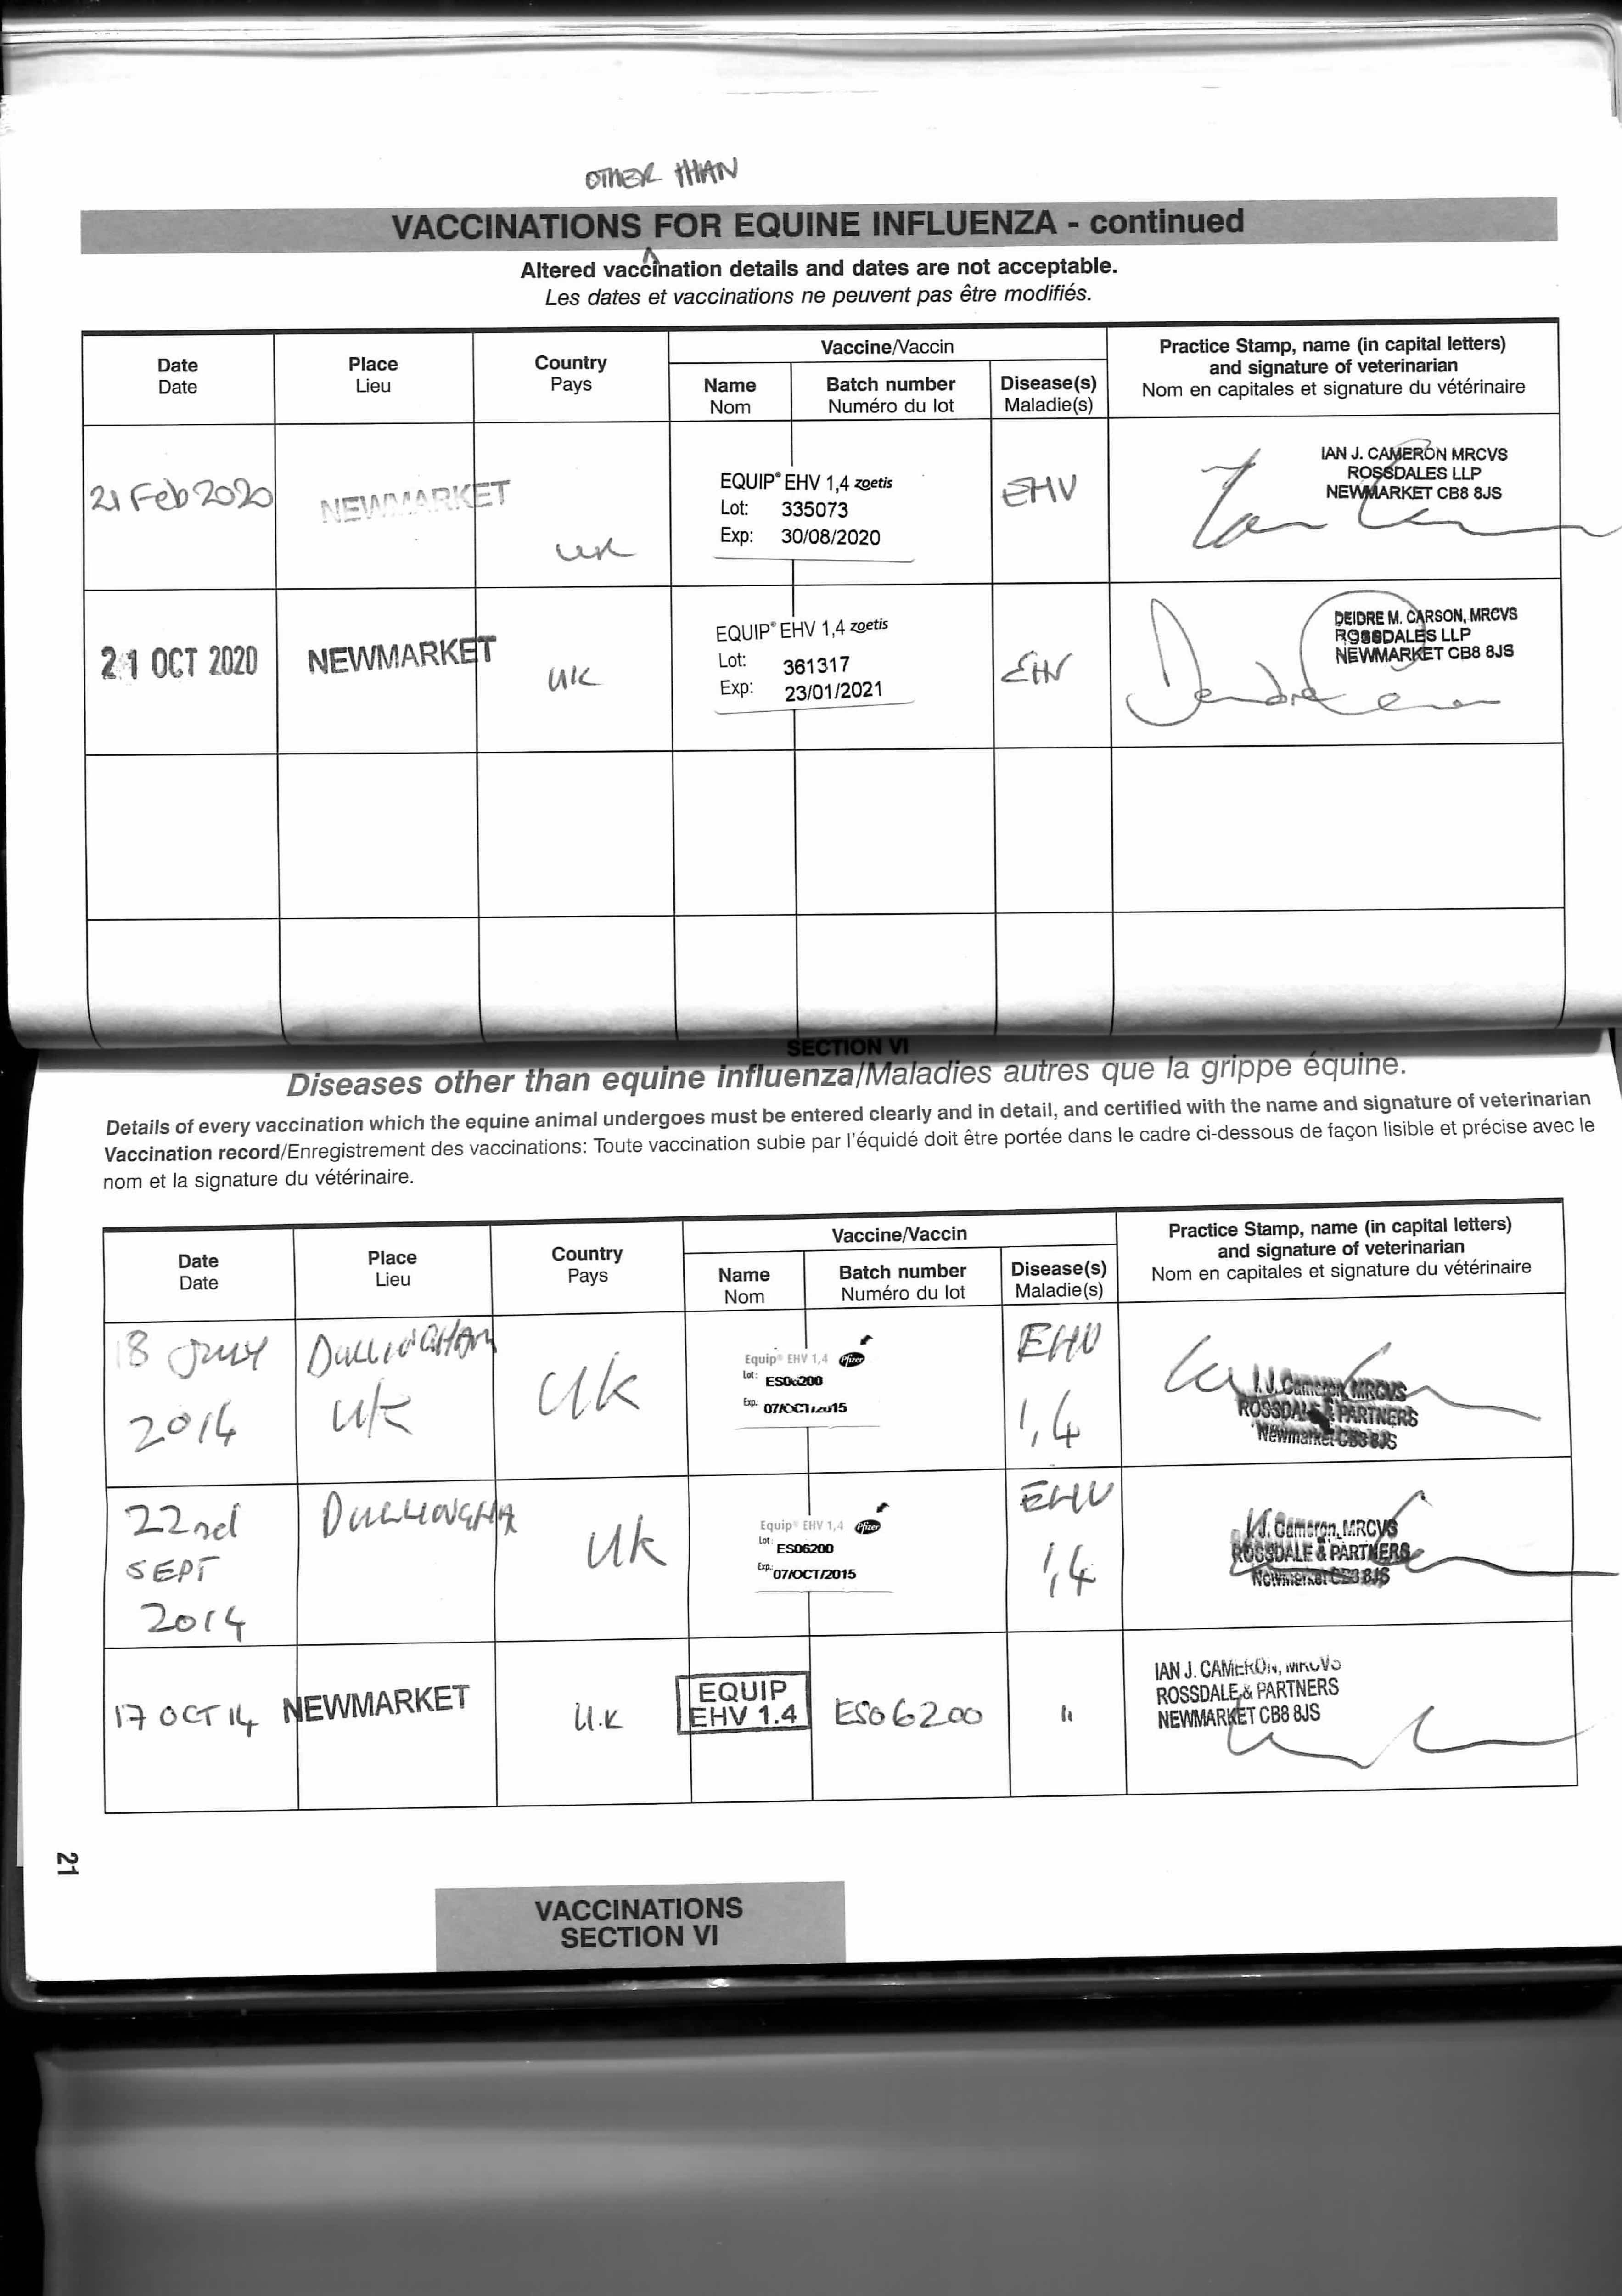 OTHER THAN
VACCINATIONS FOR EQUINE INFLUENZA - continued
Altered vaccination details and dates are not acceptable.
Les dates et vaccinations ne peuvent pas être modifiés.
Date
Date
Place
Lieu
Country
Pays
Vaccine/Vaccin
Name
Nom
Batch number
Numéro du lot
Disease(s)
Maladie(s)
Practice Stamp, name (in capital letters)
and signature of veterinarian
Nom en capitales et signature du vétérinaire
21 Feb 2020
NEWMARKET
UK
EQUIP® EHV 1,4 zoetis
Lot: 335073
Exp: 30/08/2020
EHV
IAN J. CAMERON MRCVS
ROSSDALES LLP
NEWMARKET CB8 8JS
21 OCT 2020
NEWMARKET
UK
EQUIP® EHV 1,4 zoetis
Lot: 361317
Exp: 23/01/2021
EHV
DEIDRE M. CARSON, MRCVS
ROSSDALES LLP
NEWMARKET CB8 8JS
SECTION VI
Diseases other than equine influenza/Maladies autres que la grippe équine.
Details of every vaccination which the equine animal undergoes must be entered clearly and in detail, and certified with the name and signature of veterinarian
Vaccination record/Enregistrement des vaccinations: Toute vaccination subie par l'équidé doit être portée dans le cadre ci-dessous de façon lisible et précise avec le
nom et la signature du vétérinaire.
Date
Date
Place
Lieu
Country
Pays
Vaccine/Vaccin
Name
Nom
Batch number
Numéro du lot
Disease(s)
Maladie(s)
Practice Stamp, name (in capital letters)
and signature of veterinarian
Nom en capitales et signature du vétérinaire
18 July
2014
DULLINGHAM
UK
UK
Equip® EHV 1,4 Pfizer
Lot: ES06200
Exp: 07/OCT/2015
EHV
1,4
I.J. Cameron, MRCVS
ROSSDALE & PARTNERS
Newmarket CB8 8JS
22nd
SEPT
2014
DULLINGHA
UK
Equip® EHV 1,4 Pfizer
Lot: ES06200
Exp: 07/OCT/2015
EHV
1,4
I.J. Cameron, MRCVS
ROSSDALE & PARTNERS
Newmarket CB8 8JS
17 OCT 14
NEWMARKET
U.K
EQUIP
EHV 1.4
ES06200
"
IAN J. CAMERON, MRCVS
ROSSDALE & PARTNERS
NEWMARKET CB8 8JS
21
VACCINATIONS
SECTION VI